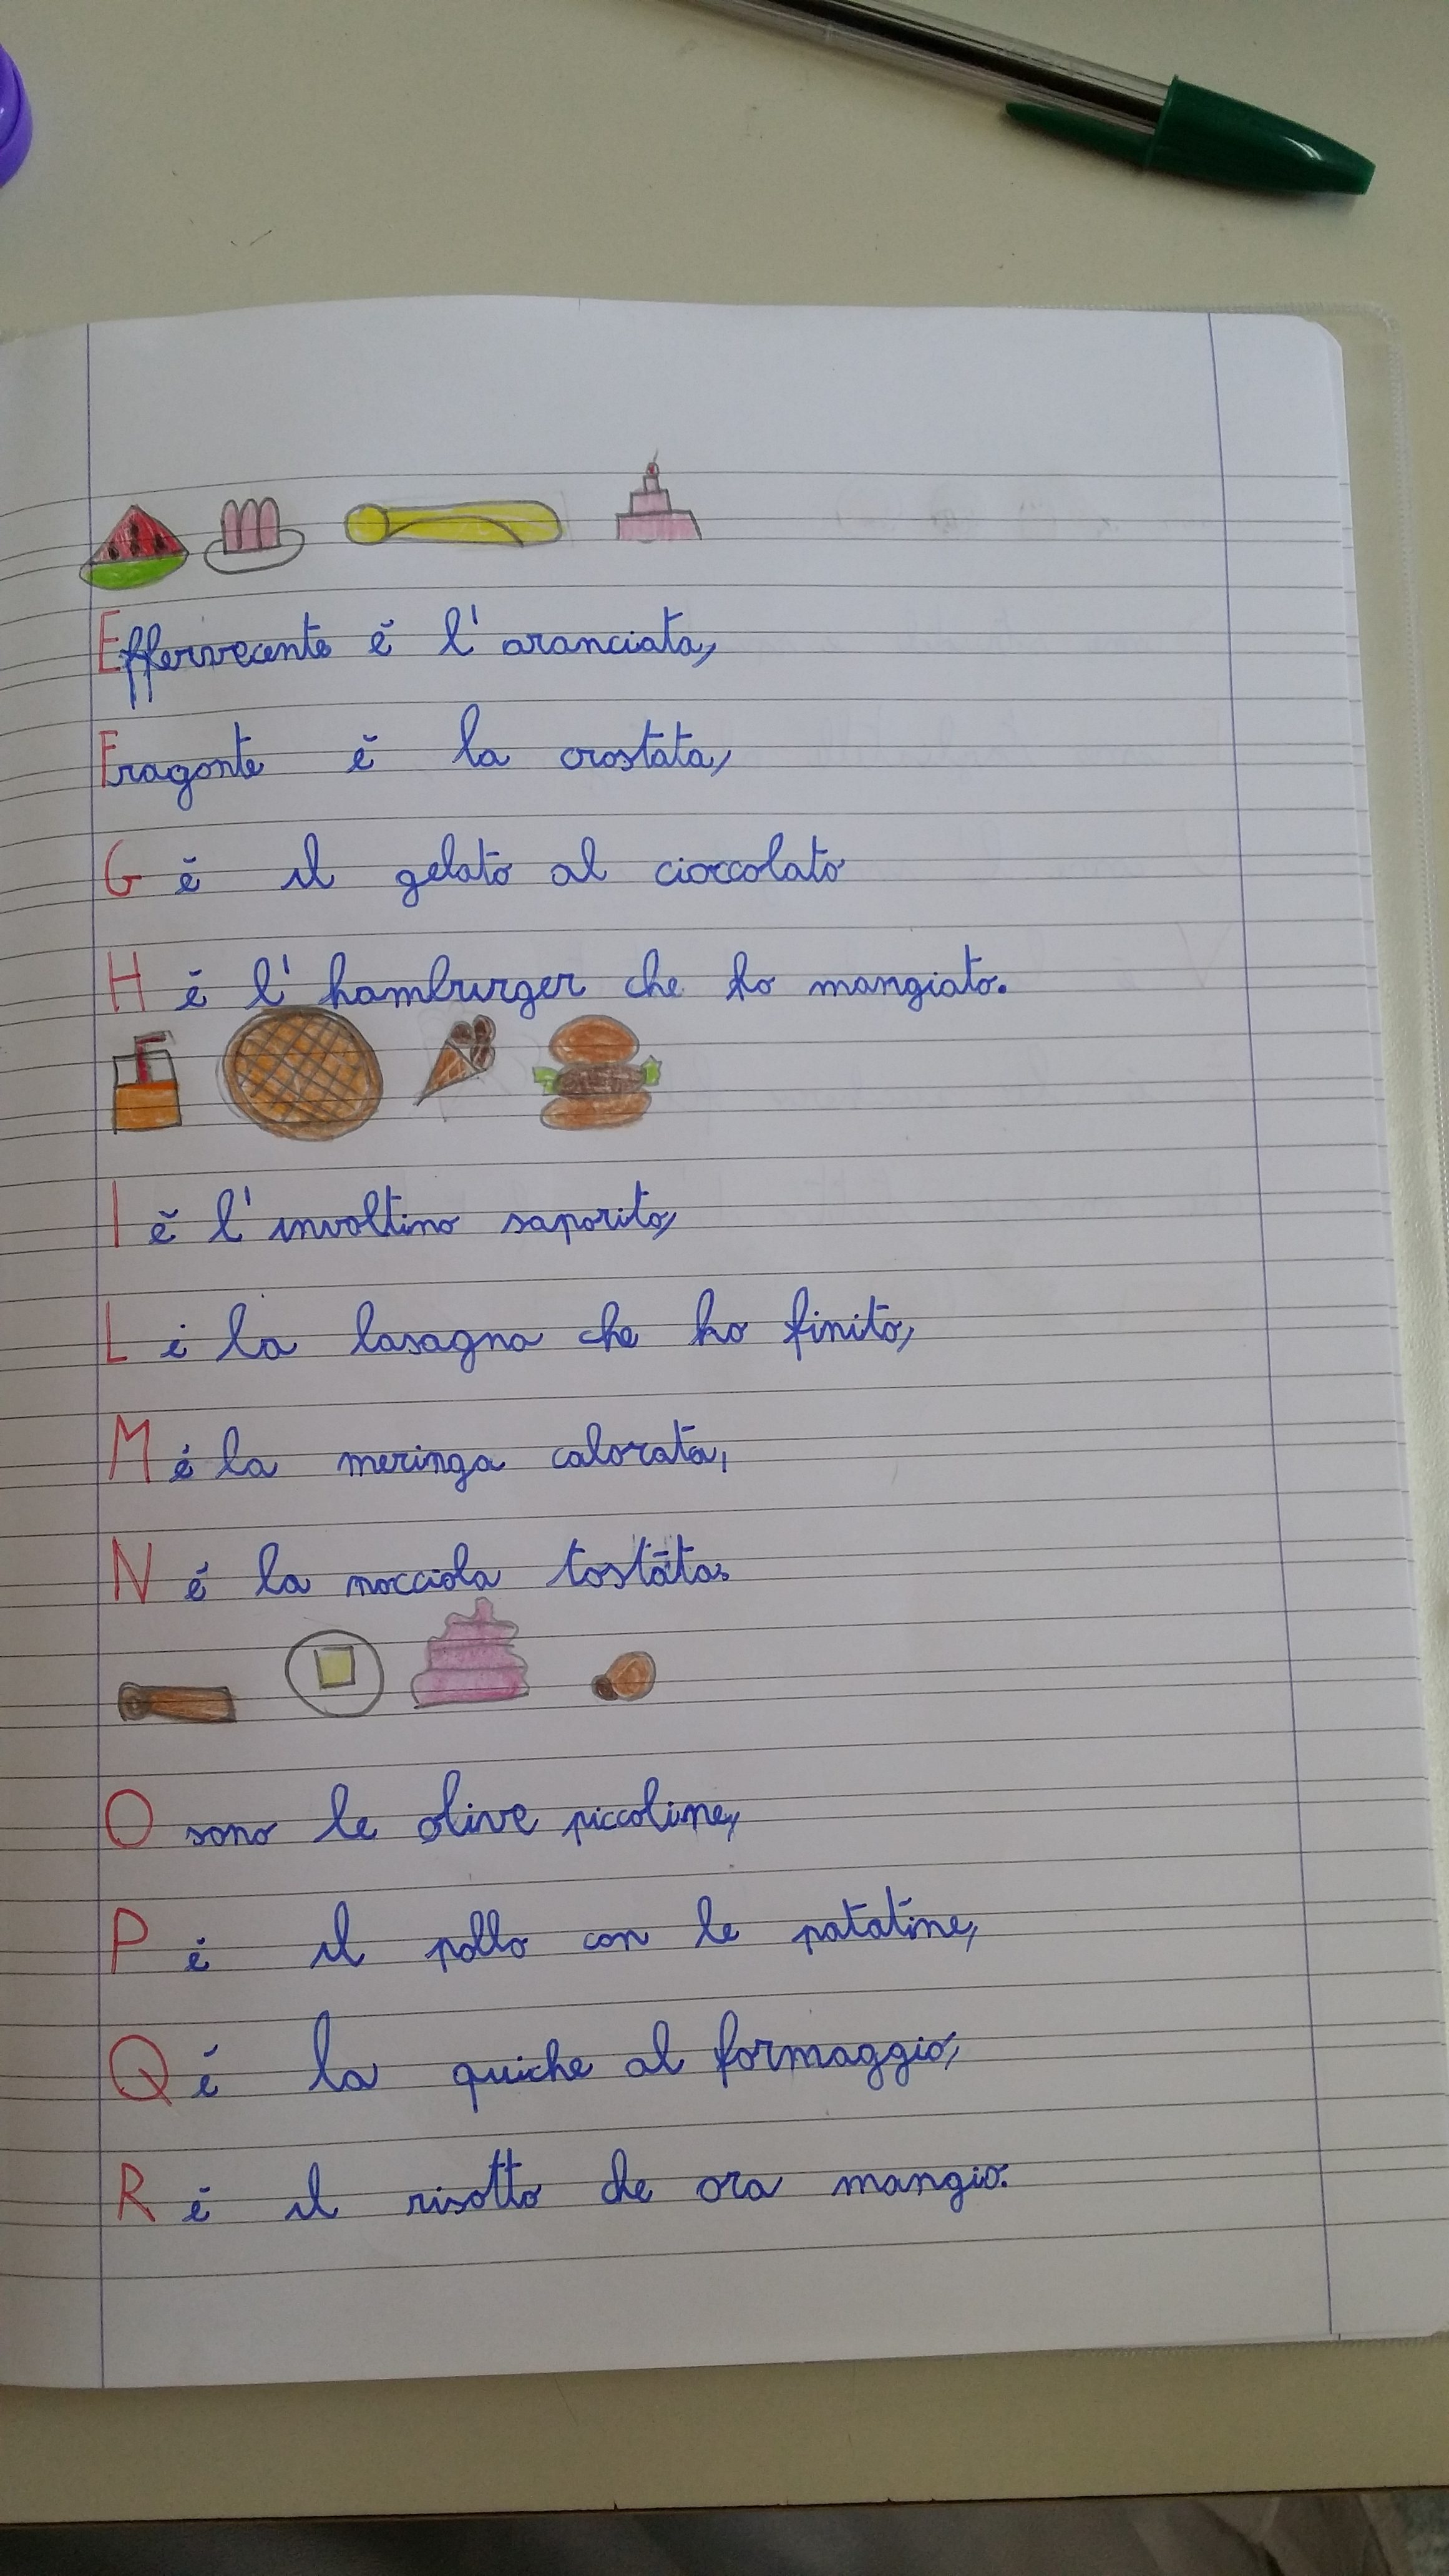 Effervecente è l'aranciata,
Fragante è la crostata,
G è il gelato al cioccolato
H è l'hamburger che ho mangiato.
I è l'involtino saporito,
L è la lasagna che ho finito,
M é la meringa calorata,
N é la nocciola tostata.
O sono le olive piccoline,
P é il pollo con le patatine,
Q é la quiche al formaggio,
R é il risotto che ora mangio.